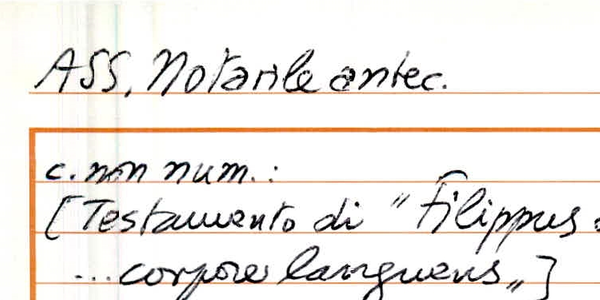 ASS, Notarile antec.
c. non num.:
[Testamento di "Filippus
...corpore languens"]